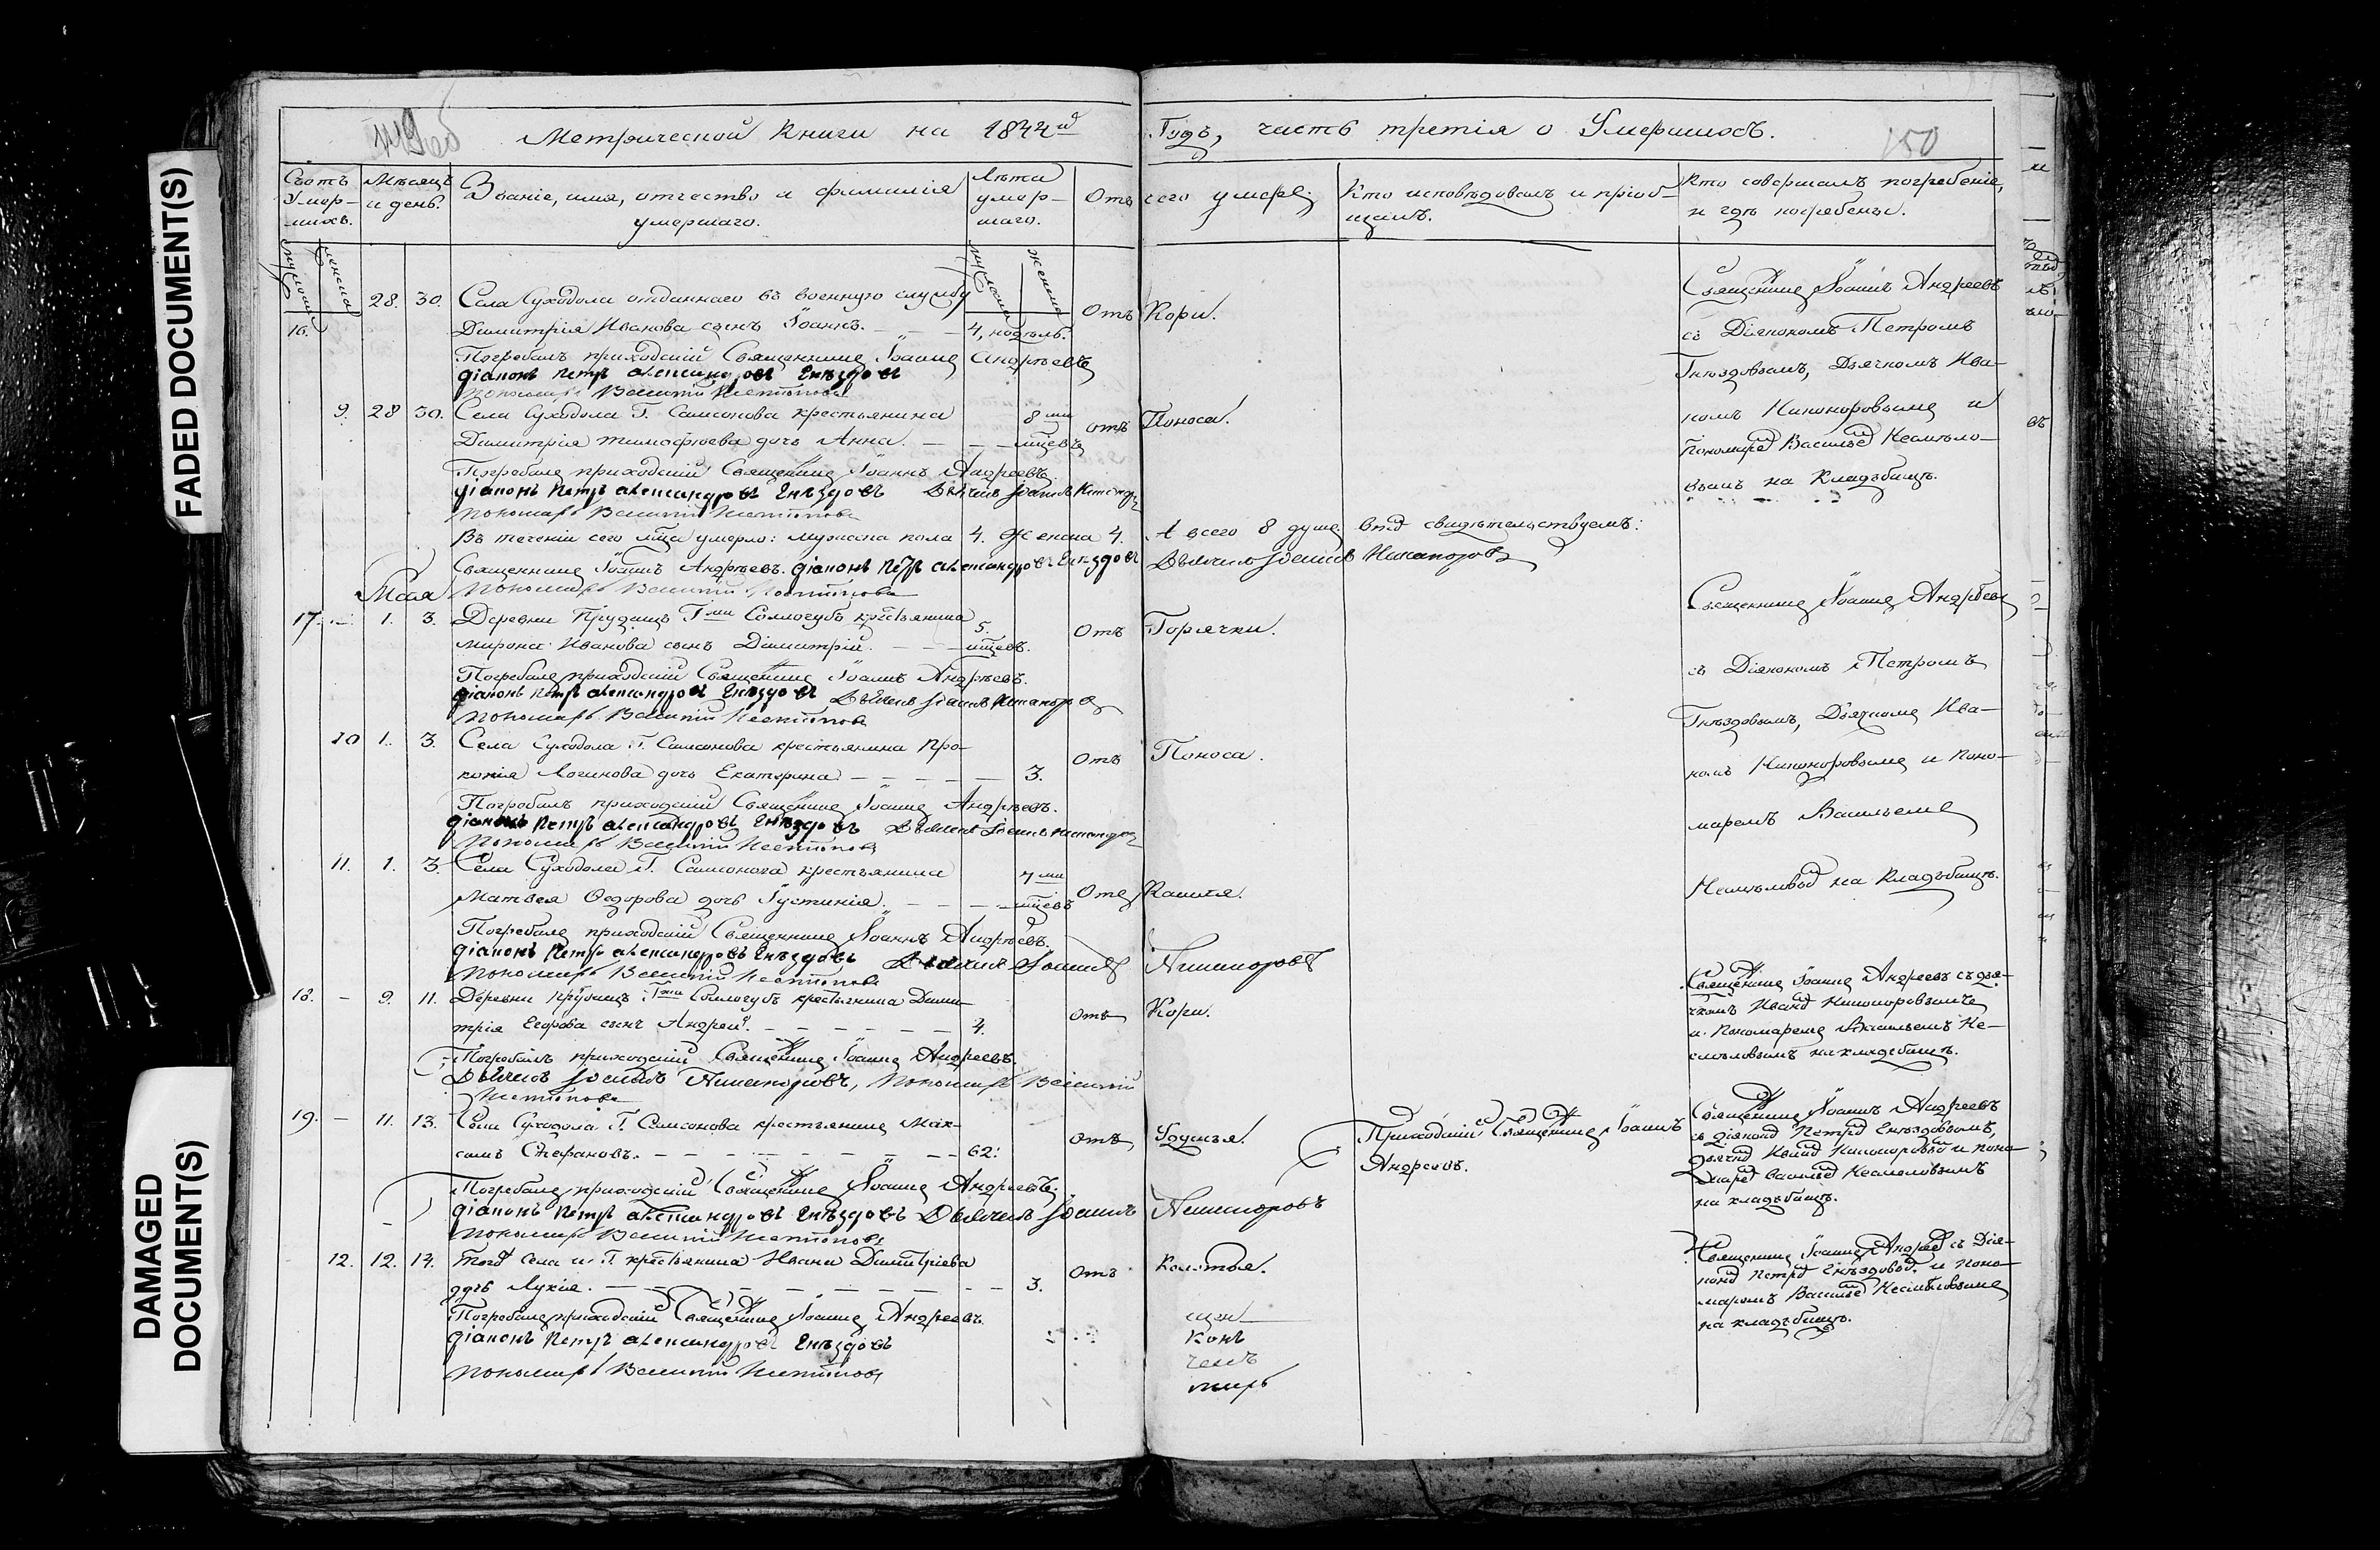 FADED DOCUMENT(S)
DAMAGED
DOCUMENT(S)
Метрической Книги на 1844й
Годъ, часть третія о Умершихъ.
150
Счотъ Умер-шихъ.
Мѣсяцъ и день.
Званіе, имя, отчество и фамилія умершаго.
Лѣта умер-шаго.
Отъ чего умеръ
Кто исповѣдовалъ и пріоб-щалъ.
Кто совершалъ погребеніе, и гдѣ погребены.
28. 30. Села Суходола отданнаго въ военную службу
16. Димитрія Иванова сынъ Іоаннъ. 4, недѣль. Отъ Кори.
Погребалъ приходскій Священникъ Іоаннъ Андреевъ
діаконъ Петръ александровъ Гнѣздовъ
Пономарь Василій
Священникъ Іоаннъ Андреевъ
съ Діакономъ Петромъ
Гнѣздовымъ, Дьячкомъ Ива-
номъ Никаноровымъ и
Пономаремъ Васильемъ Несмѣло-
вымъ на Кладбищѣ.
9. 28 30. Села Суходола Г. Самсонова крестьянина 8ми
Димитрія тимофѣева дочь Анна. мцевъ отъ Поноса.
Погребалъ приходскій Священникъ Іоаннъ Андреевъ
діаконъ Петръ александровъ Гнѣздовъ Дьячекъ Іоаннъ Никаноровъ
Пономарь Василій
Въ теченіи сего мца умерло: мужска пола 4. Женска 4. А всего 8 душъ въ томъ свидѣтельствуемъ:
Священникъ Іоаннъ Андреевъ. діаконъ Петръ александровъ Гнѣздовъ Дьячекъ Іоаннъ Никаноровъ
Пономарь Василій
Мая
17. 1. 3. Деревни Прудищъ Гжи Сологубъ крестьянина 5.
мирона Иванова сынъ Димитрій. мцевъ. Отъ Горячки.
Погребалъ приходскій Священникъ Іоаннъ Андреевъ.
діаконъ Петръ александровъ Гнѣздовъ Дьячекъ Іоаннъ Никаноровъ
Пономарь Василій
Священникъ Іоаннъ Андреевъ
съ Діакономъ Петромъ
Гнѣздовымъ, Дьячкомъ Ива-
номъ Никаноровымъ и Поно-
маремъ Васильемъ
Несмѣловымъ на Кладбищѣ.
10 1. 3. Села Суходола Г. Самсонова крестьянина Про-
копія Логинова дочь Екатерина 3. Отъ Поноса.
Погребалъ приходскій Священникъ Іоаннъ Андреевъ.
діаконъ Петръ александровъ Гнѣздовъ Дьячекъ Іоаннъ Никаноровъ
Пономарь Василій
11. 1. 3. Села Суходола Г. Самсонова крестьянина 7ми
Матвея Ѳедорова дочь Іустинія. мцевъ Отъ Кашля.
Погребалъ приходскій Священникъ Іоаннъ Андреевъ.
діаконъ Петръ александровъ Гнѣздовъ Дьячекъ Іоаннъ Никаноровъ
Пономарь Василій
18. 9. 11. Деревни Прудищъ Гжи Сологубъ крестьянина Дими-
трія Егорова сынъ Андрей. 4. Отъ Кори.
Погребалъ приходскій Священникъ Іоаннъ Андреевъ.
Дьячекъ Іоаннъ Никаноровъ, Пономарь Василій
Священникъ Іоаннъ Андреевъ съ дья-
чкомъ Иваномъ Никаноровымъ
и Пономаремъ Васильемъ Не-
смѣловымъ на кладбищѣ.
19. 11. 13. Села Суходола Г. Самсонова крестьянинъ Мак-
симъ Стефановъ. 62. Отъ Удушья.
Приходскій Священникъ Іоаннъ
Андреевъ.
Погребалъ приходскій Священникъ Іоаннъ Андреевъ.
діаконъ Петръ александровъ Гнѣздовъ Дьячекъ Іоаннъ Никаноровъ
Пономарь Василій
Священникъ Іоаннъ Андреевъ
съ діакономъ Петромъ Гнѣздовымъ,
дьячкомъ Иваномъ Никаноровымъ и поно-
маремъ Васильемъ Несмеловымъ
на кладбищѣ.
12. 12. 14. Того села и Г. крестьянина Ивана Димитріева
дочь Лукія. 3. Отъ Колотья.
Погребалъ приходскій Священникъ Іоаннъ Андреевъ.
діаконъ Петръ александровъ Гнѣздовъ
Пономарь Василій
Священникъ Іоаннъ Андреевъ съ Діа-
кономъ Петромъ Гнѣздовымъ и Поно-
маремъ Васильемъ Несмѣловымъ
на кладбищѣ.
щен
конъ
чекъ
марь